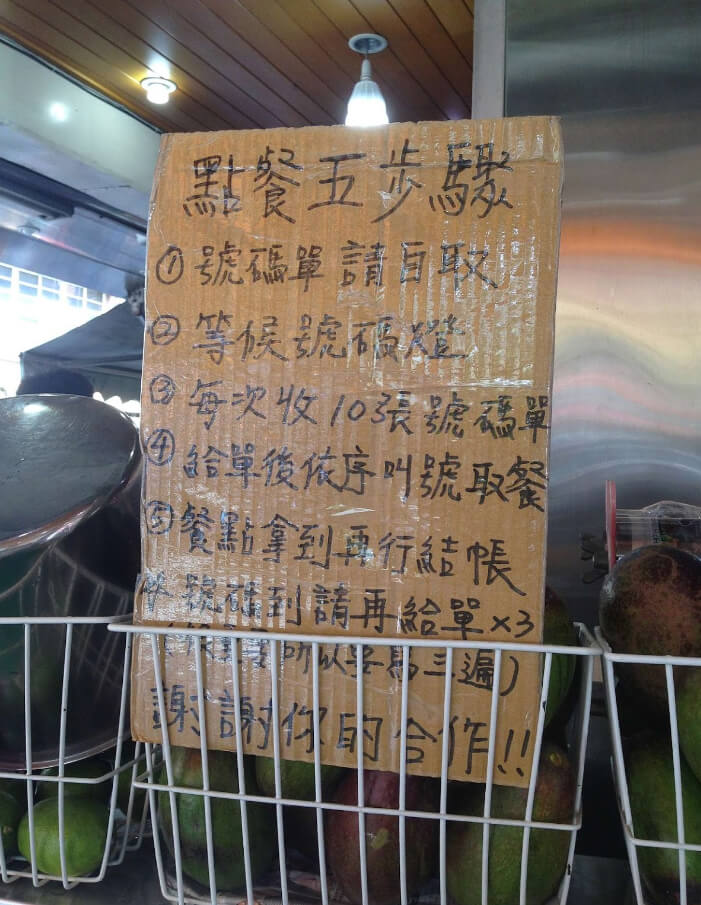 點餐五步驟
① 號碼單請自取
② 等候號碼燈
③ 每次收10張號碼單
④ 給單後依序叫號取餐
⑤ 餐點拿到再行結帳
* 號碼到請再給單×3
(很重要所以要寫三遍)
謝謝你的合作!!